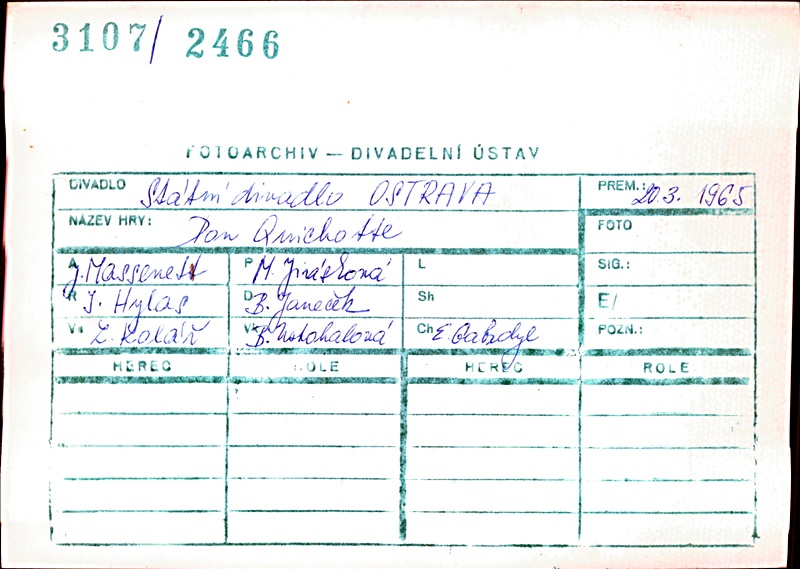 3107/ 2466
FOTOARCHIV — DIVADELNÍ ÚSTAV
DIVADLO Státní divadlo OSTRAVA PREM.: 20.3. 1965
NÁZEV HRY: Don Quichotte FOTO
A J. Massenet P M. Jirásková L SIG.:
R I. Hylas D B. Janeček Sh E/
Vs Z. Kolář Vk B. Ch E. Gabzdyl POZN.:
HEREC ROLE HEREC ROLE